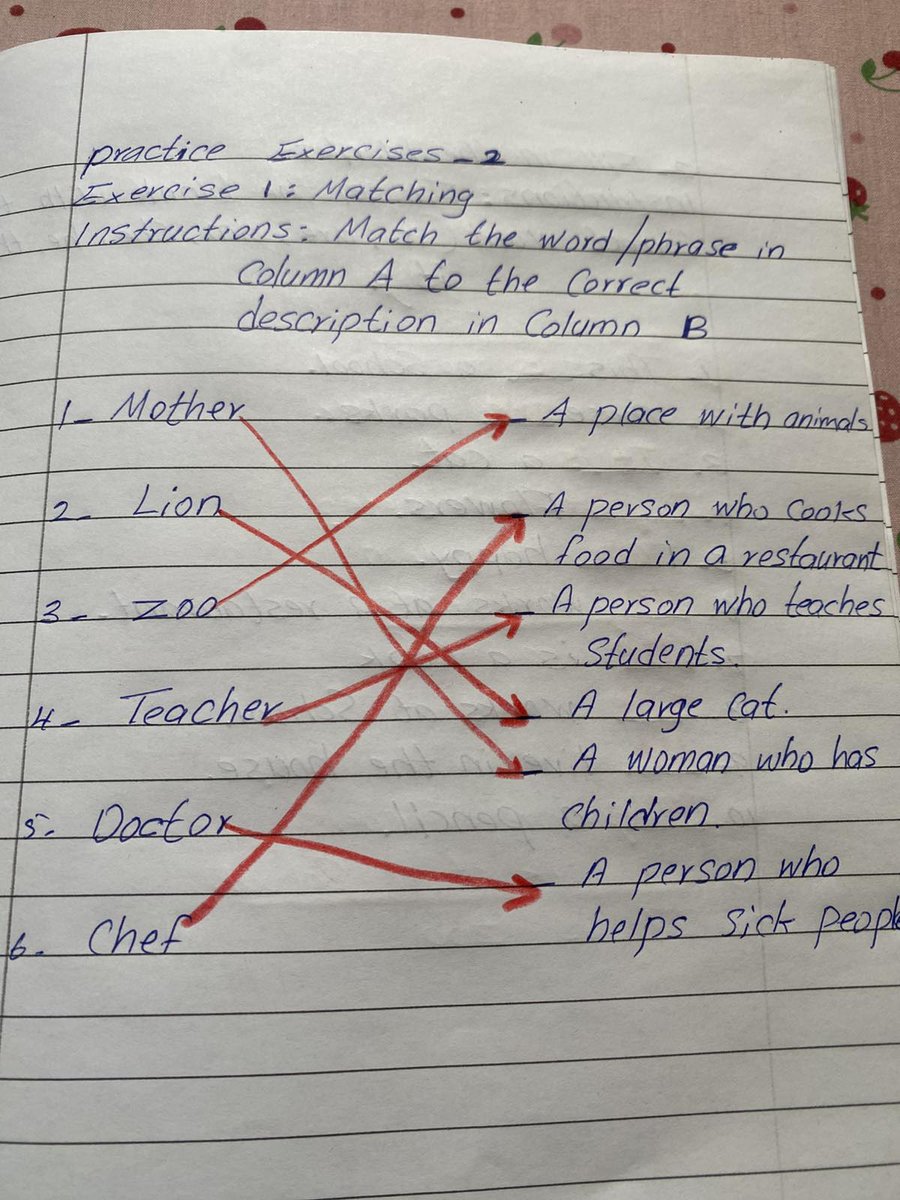 practice Exercises - 2
Exercise 1: Matching
Instructions: Match the word/phrase in
Column A to the Correct
description in Column B
1- Mother - A place with animals
2- Lion - A person who Cooks
food in a restaurant
3- ZOO - A person who teaches
Students.
4- Teacher - A large Cat.
- A woman who has
5- Doctor Children.
- A person who
6- Chef helps sick people